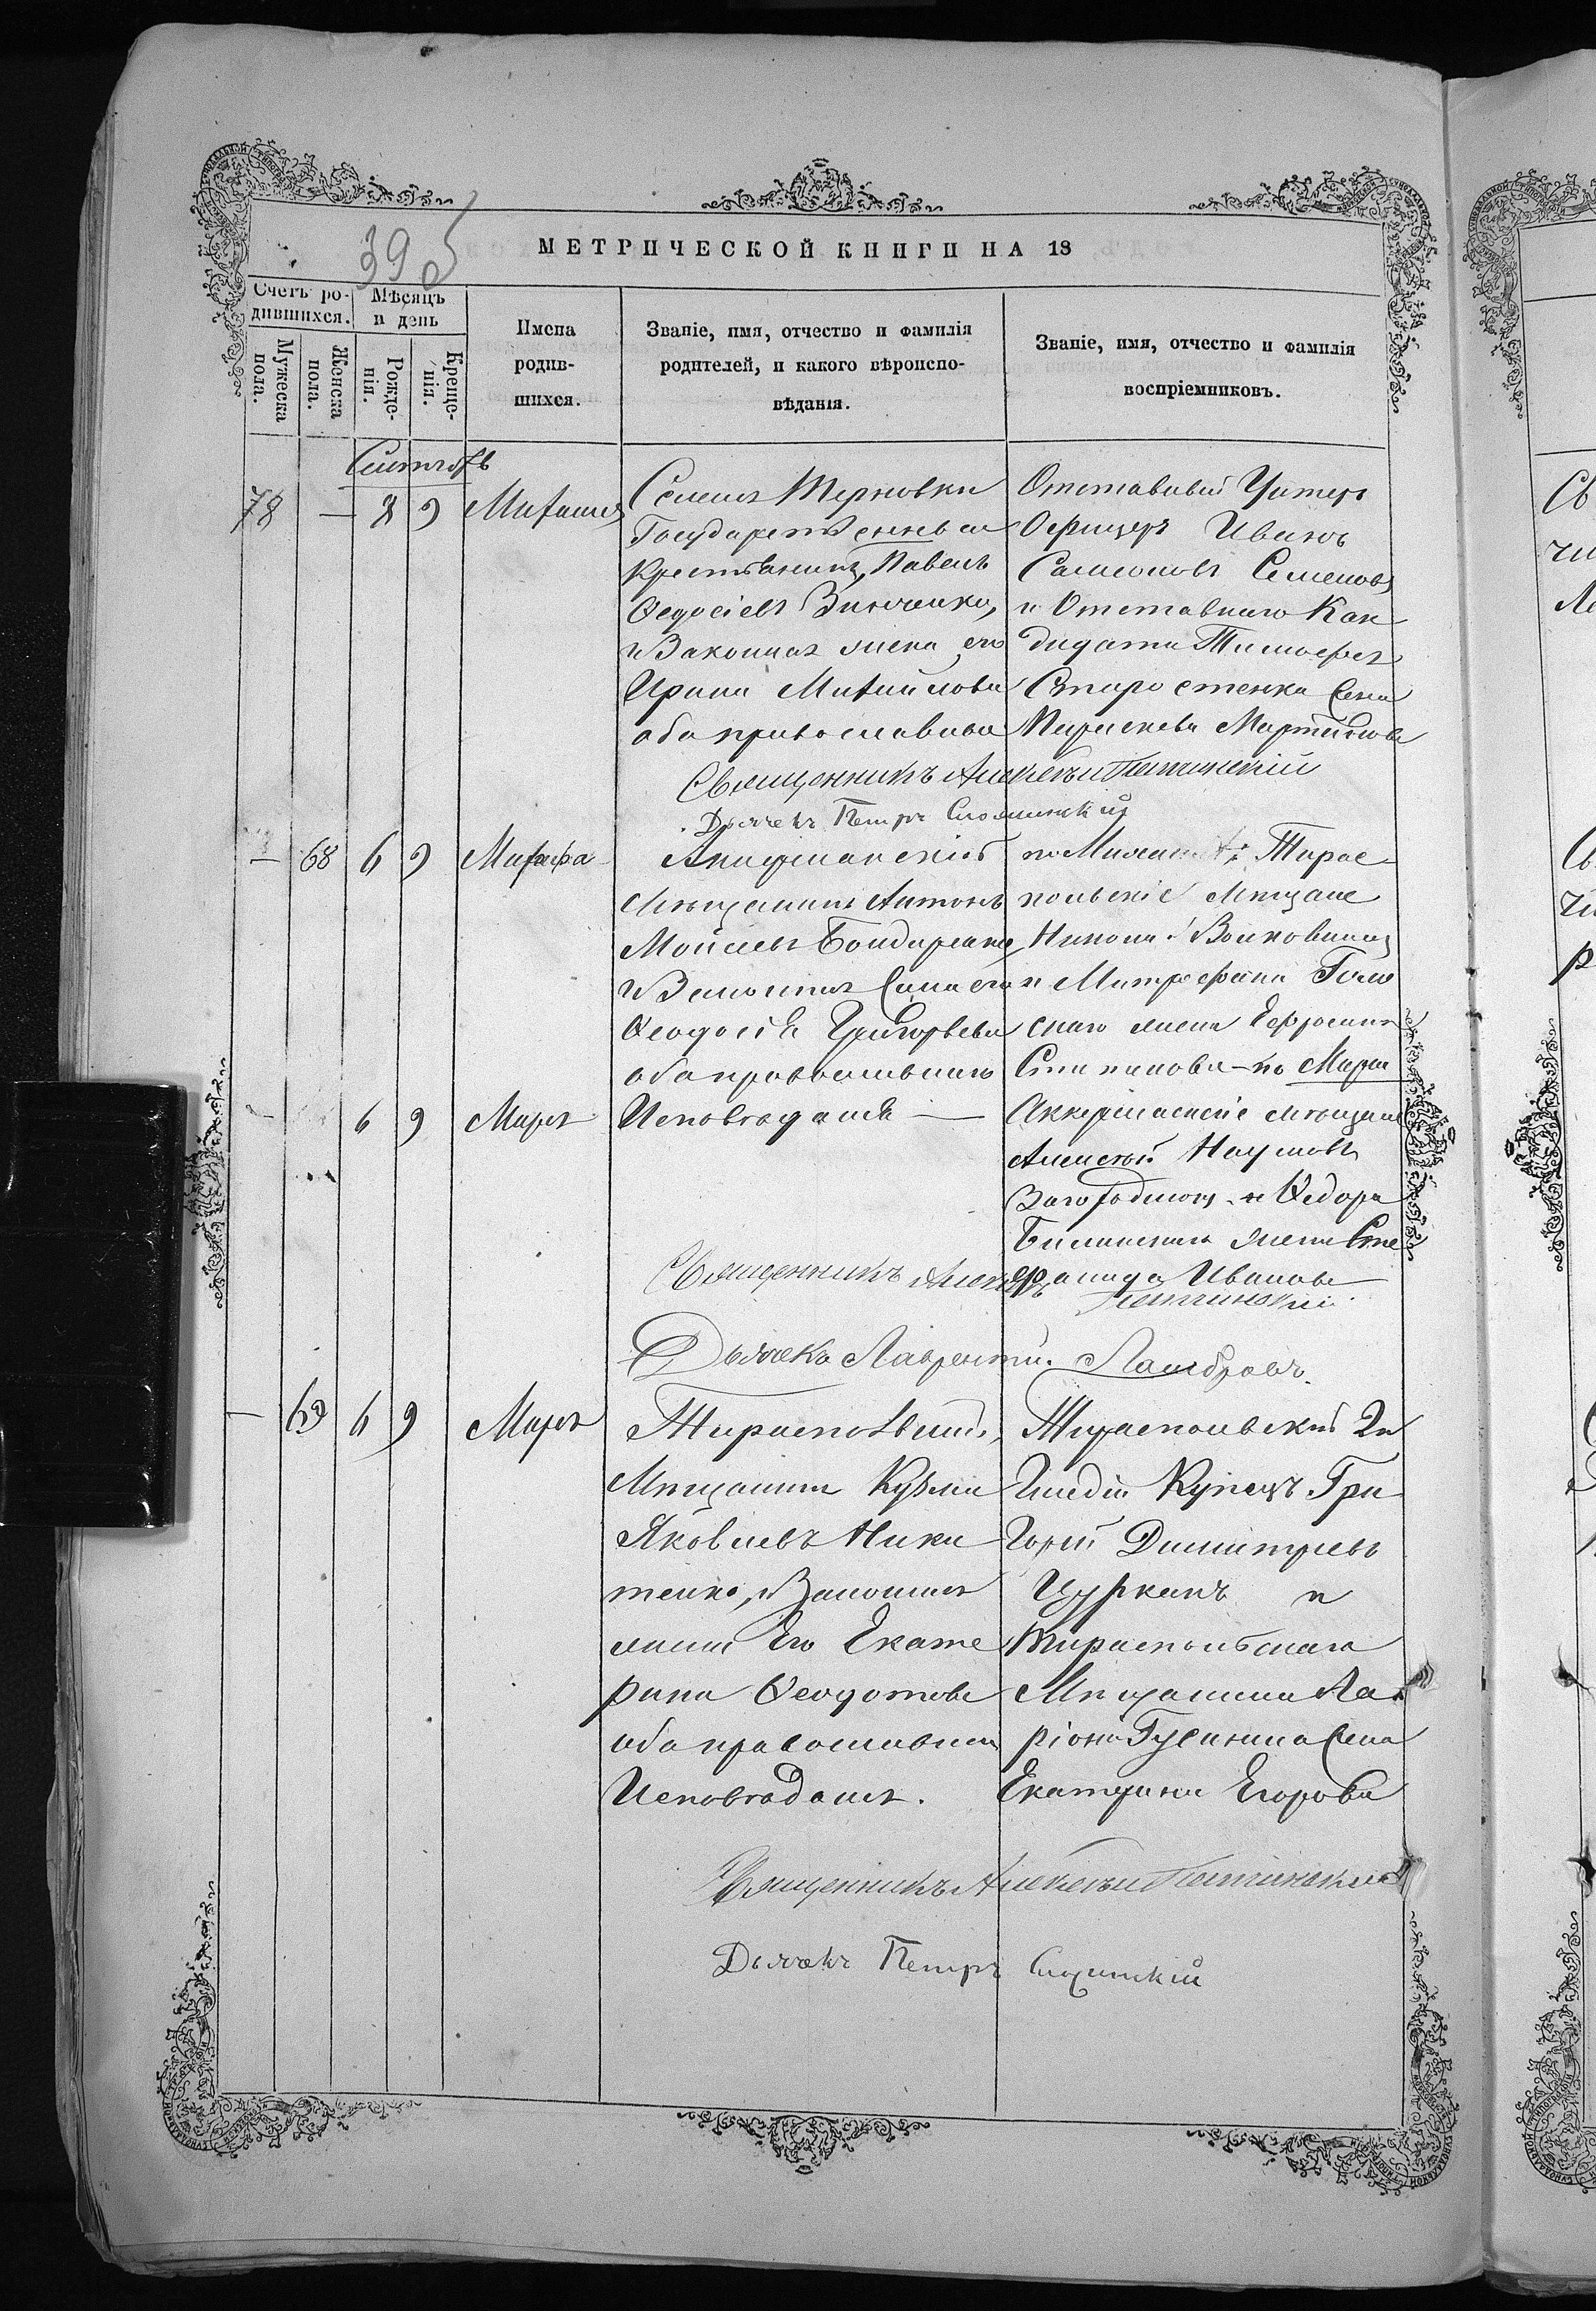 395
МЕТРИЧЕСКОЙ КНИГИ НА 18
Счетъ ро-
дившихся.
Мѣсяцъ
и день
Мужеска
пола.
Женска
пола.
Рожде-
нія.
Креще-
нія.
Имена
родив-
шихся.
Званіе, имя, отчество и фамилія
родителей, и какого вѣроиспо-
вѣданія.
Званіе, имя, отчество и фамилія
воспріемниковъ.
Сентябрь
78 — 8 9 Михаилъ
Селенія Терновки
Государственный
Крестьянинъ, Павелъ
Ѳедосіевъ Зинченко,
и Законная жена его
Ирина Михайлова
оба православные
Отставной Унтеръ
Офицеръ Иванъ
Самсоновъ Семеновъ
и Отставнаго Кан
дидата Тимофея
Старостенка жена
Параскева Мартинова
Священникъ Алексѣй
Дьячекъ Петръ
— 68 6 9 Марфа
Мѣщанинъ Антонъ
Моисеевъ Бондаренко
и Законная жена его
Ѳеодосія Григорьева
оба православнаго
Исповѣданія —
Тирас
польскіе Мѣщане
Никола Волковинец
и Митрофана Голо
скаго жена Ефросинія
Степанова — по Маріи
6 9 Марія
Аккерманскіе мѣщане
Алексѣй Наумовъ
Загороднюкъ и Ѳедора
Билинскаго жена Сте
фанида Иванова
Священникъ Алексѣй
Дьячекъ Лаврентій Ламбровъ.
— 69 6 9 Марія
Тираспольскій
Мѣщанинъ Кузма
Яковлевъ Ники
тенко, и Законная
жена Его Екате
рина Ѳеодотова
оба православнаго
Исповѣданія.
Тираспольскій 2й
Гильдіи Купецъ Гри
горій Димитріевъ
Цурканъ и
Тираспольскаго
Мѣщанина Ла
ріона Гусинина жена
Екатерина Егорова
Священникъ Алексѣй
Дьячекъ Петръ